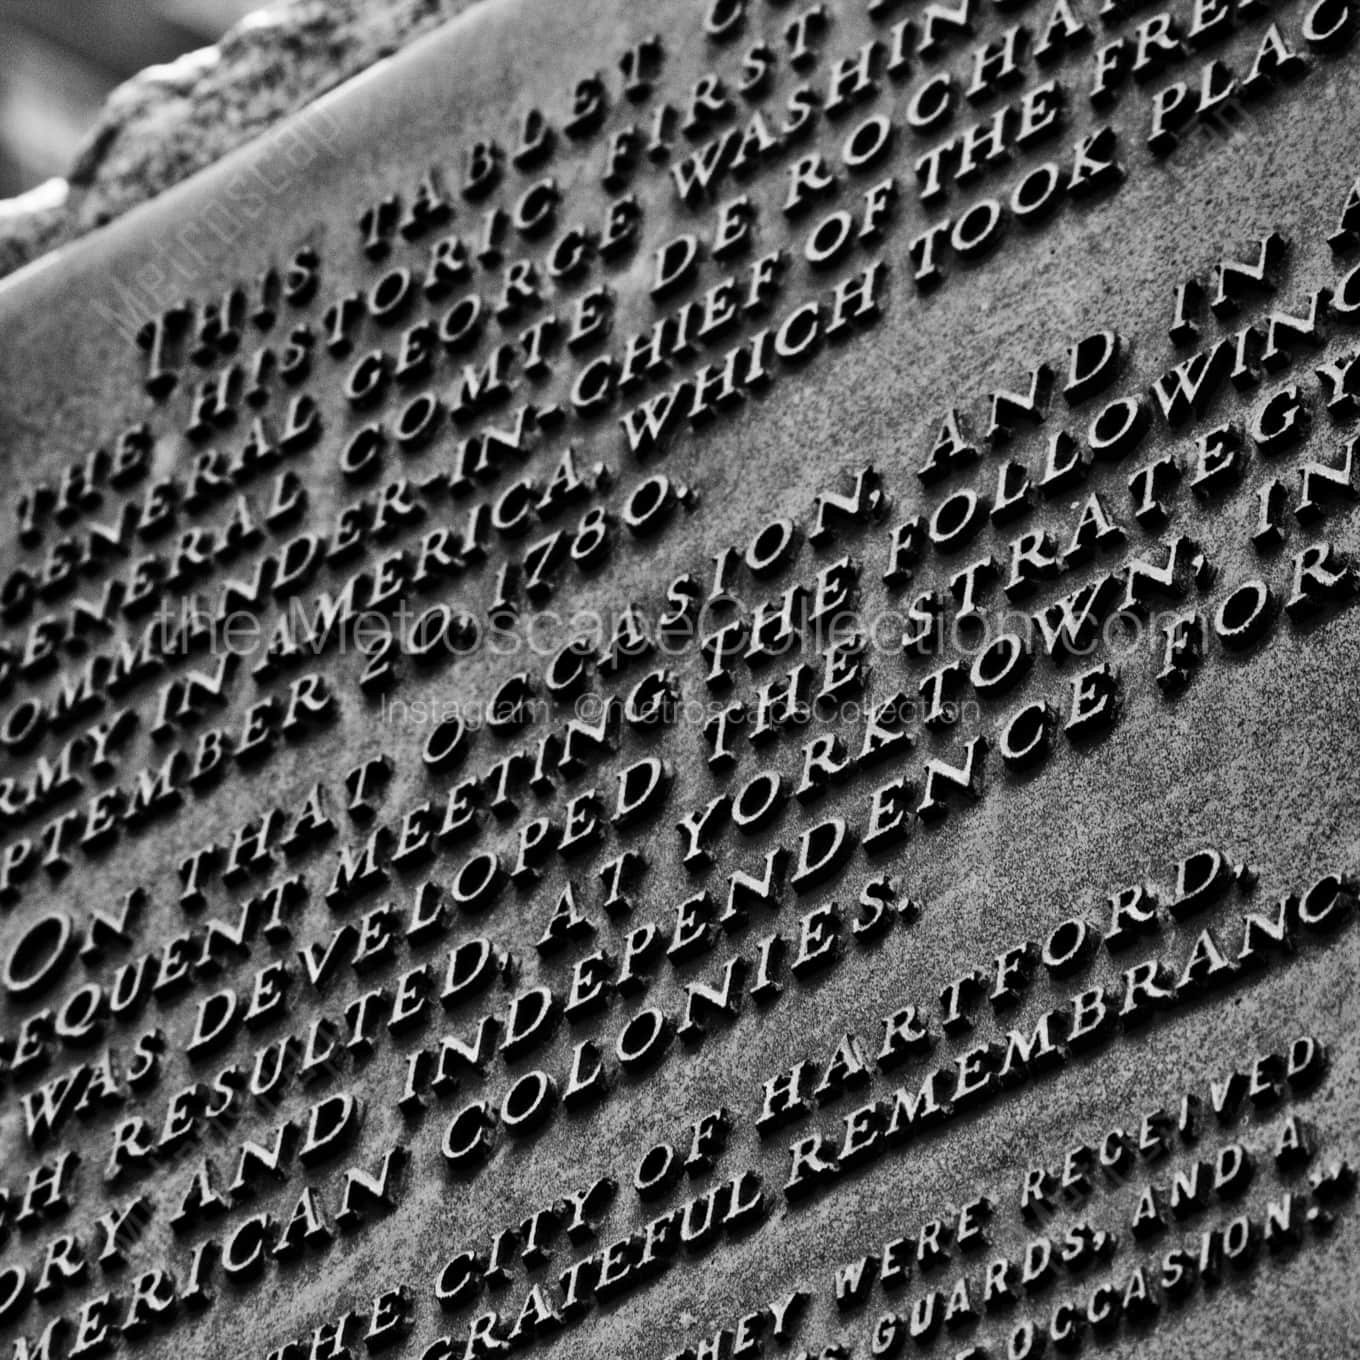 THIS TABLET
THE HISTORIC FIRST
GENERAL GEORGE WASHIN
GENERAL COMTE DE ROCHA
COMMANDER-IN-CHIEF OF THE FRE
RMY IN AMERICA, WHICH TOOK PLAC
PTEMBER 20, 1780.
ON THAT OCCASION, AND IN A
SEQUENT MEETING THE FOLLOWING
WAS DEVELOPED THE STRATEGY
CH RESULTED, AT YORKTOWN, IN
ORY AND INDEPENDENCE FOR
MERICAN COLONIES.
THE CITY OF HARTFORD,
GRATEFUL REMEMBRANC
HEY WERE RECEIVED
S GUARDS, AND A
OCCASION."
the MetroscapeCollection.com
Instagram: @metroscapeCollection
Metroscap